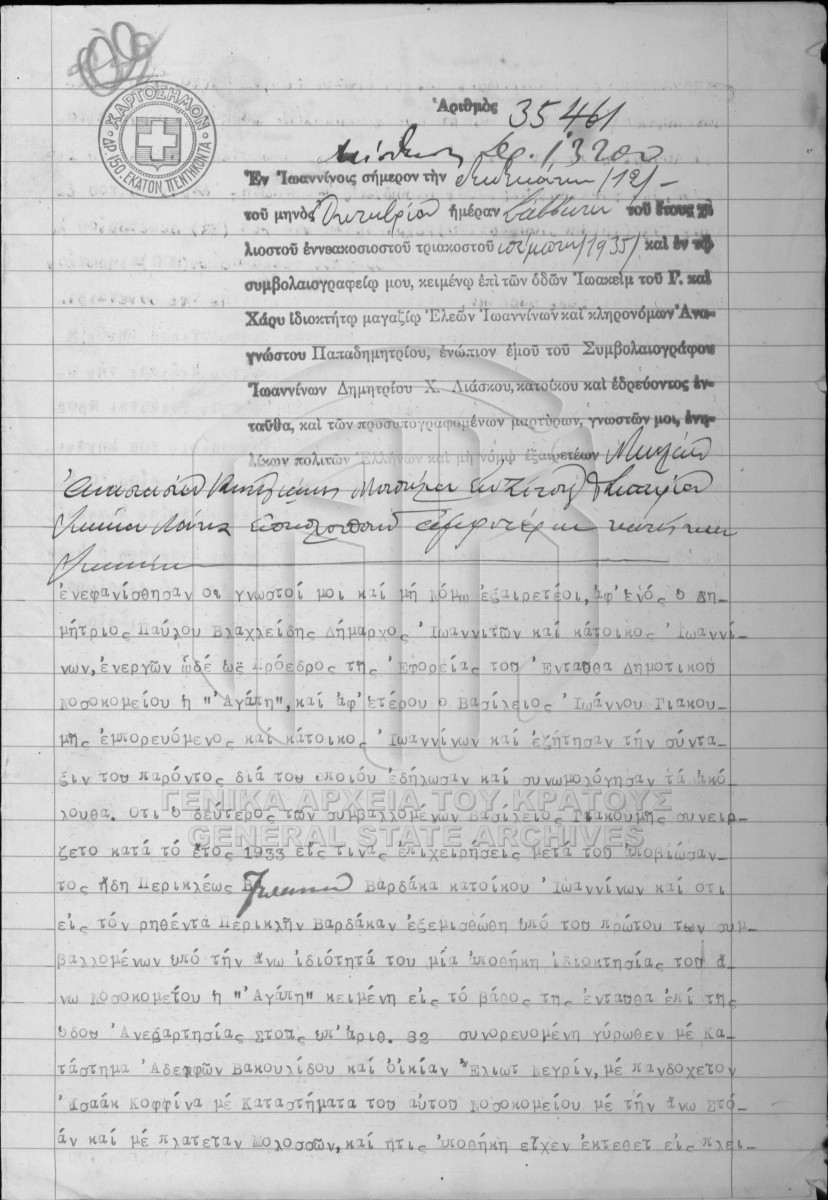 ΧΑΡΤΟΣΗΜΟΝ
ΔΡ. 150. ΕΚΑΤΟΝ ΠΕΝΤΗΚΟΝΤΑ
Ἀριθμὸς 35461
Δρ. 13200
Ἐν Ἰωαννίνοις σήμερον τὴν δωδεκάτην /12/-
τοῦ μηνὸς Ὀκτωβρίου ἡμέραν Σάββατον τοῦ ἔτους χι
λιοστοῦ ἐννεακοσιοστοῦ τριακοστοῦ πέμπτου /1935/ καὶ ἐν τῷ
συμβολαιογραφείῳ μου, κειμένῳ ἐπὶ τῶν ὁδῶν Ἰωακεὶμ τοῦ Γ. καὶ
Χάρυ ἰδιοκτήτῳ μαγαζίῳ Ἐλεῶν Ἰωαννίνων καὶ κληρονόμων Ἀνα-
γνώστου Παπαδημητρίου, ἐνώπιον ἐμοῦ τοῦ Συμβολαιογράφου
Ἰωαννίνων Δημητρίου Χ. Λιάσκου, κατοίκου καὶ ἑδρεύοντος ἐν-
ταῦθα, καὶ τῶν προσυπογραφομένων μαρτύρων, γνωστῶν μοι, ἐνη-
λίκων πολιτῶν Ἑλλήνων καὶ μὴ νόμῳ ἐξαιρετέων
ἐνεφανίσθησαν οι γνωστοί μοι καί μή Νόμω ἐξαιρετέοι, ἀφ'ἑνός ο Δη-
μήτριος Παύλου Βλαχλείδης Δήμαρχος 'Ιωαννιτῶν καί κάτοικος 'Ιωαννί-
νων, ἐνεργῶν ὧδέ ὡς Πρόεδρος τῆς 'Εφορείας του 'Ενταῦθα Δημοτικοῦ
Νοσοκομείου ἡ "'Αγάπη", καί ἀφ'ἑτέρου ο Βασίλειος 'Ιωάννου Γιακου-
μῆς ἐμπορευόμενος καί κάτοικος 'Ιωαννίνων καί ἐζήτησαν τήν σύντα-
ξιν του παρόντος διά του οποιόυ ἐδήλωσαν καί συνωμολόγησαν τά ἀκό-
λουθα. Οτι ο δεύτερος τῶν συμβαλλομένων Βασίλειος Γιακουμῆς συνειρ-
ζετο κατά τό ἔτος 1933 εἰς τινας ἐπιχειρήσεις μετά του ἀποβιώσαν-
τος ἤδη Περικλέως Βαρδάκα κατοίκου 'Ιωαννίνων καί οτι
εἰς τόν ρηθέντα Περικλῆν Βαρδάκαν ἐξεμισθώθη ὑπό του πρώτου των συμ-
βαλλομένων υπό τήν ἄνω ἰδιότητά του μία ἀποθήκη ἰδιοκτησίας του ἄ-
νω Νοσοκομείου ἡ "'Αγάπη" κειμένη εἰς τό βάθος της ἐνταῦθα ἐπί τῆς
οδου 'Ανεξαρτησίας Στοᾶς υπ'ἀριθ. 82 συνορευομένη γύρωθεν μέ Κα-
τάστημα 'Αδελφῶν Βακουλίδου καί οἰκίαν 'Ελιωτ Νεγρίν, μέ πανδοχετον
'Ισαάκ Κοφφίνα μέ Καταστήματα του αὐτοῦ Νοσοκομείου μέ τήν ἄνω Στό-
άν καί μέ πλατεταν Μολοσσῶν, καί ἥτις ἀποθήκη εἶχεν ἐκτεθετ εἰς πλει-
ΓΕΝΙΚΑ ΑΡΧΕΙΑ ΤΟΥ ΚΡΑΤΟΥΣ
GENERAL STATE ARCHIVES